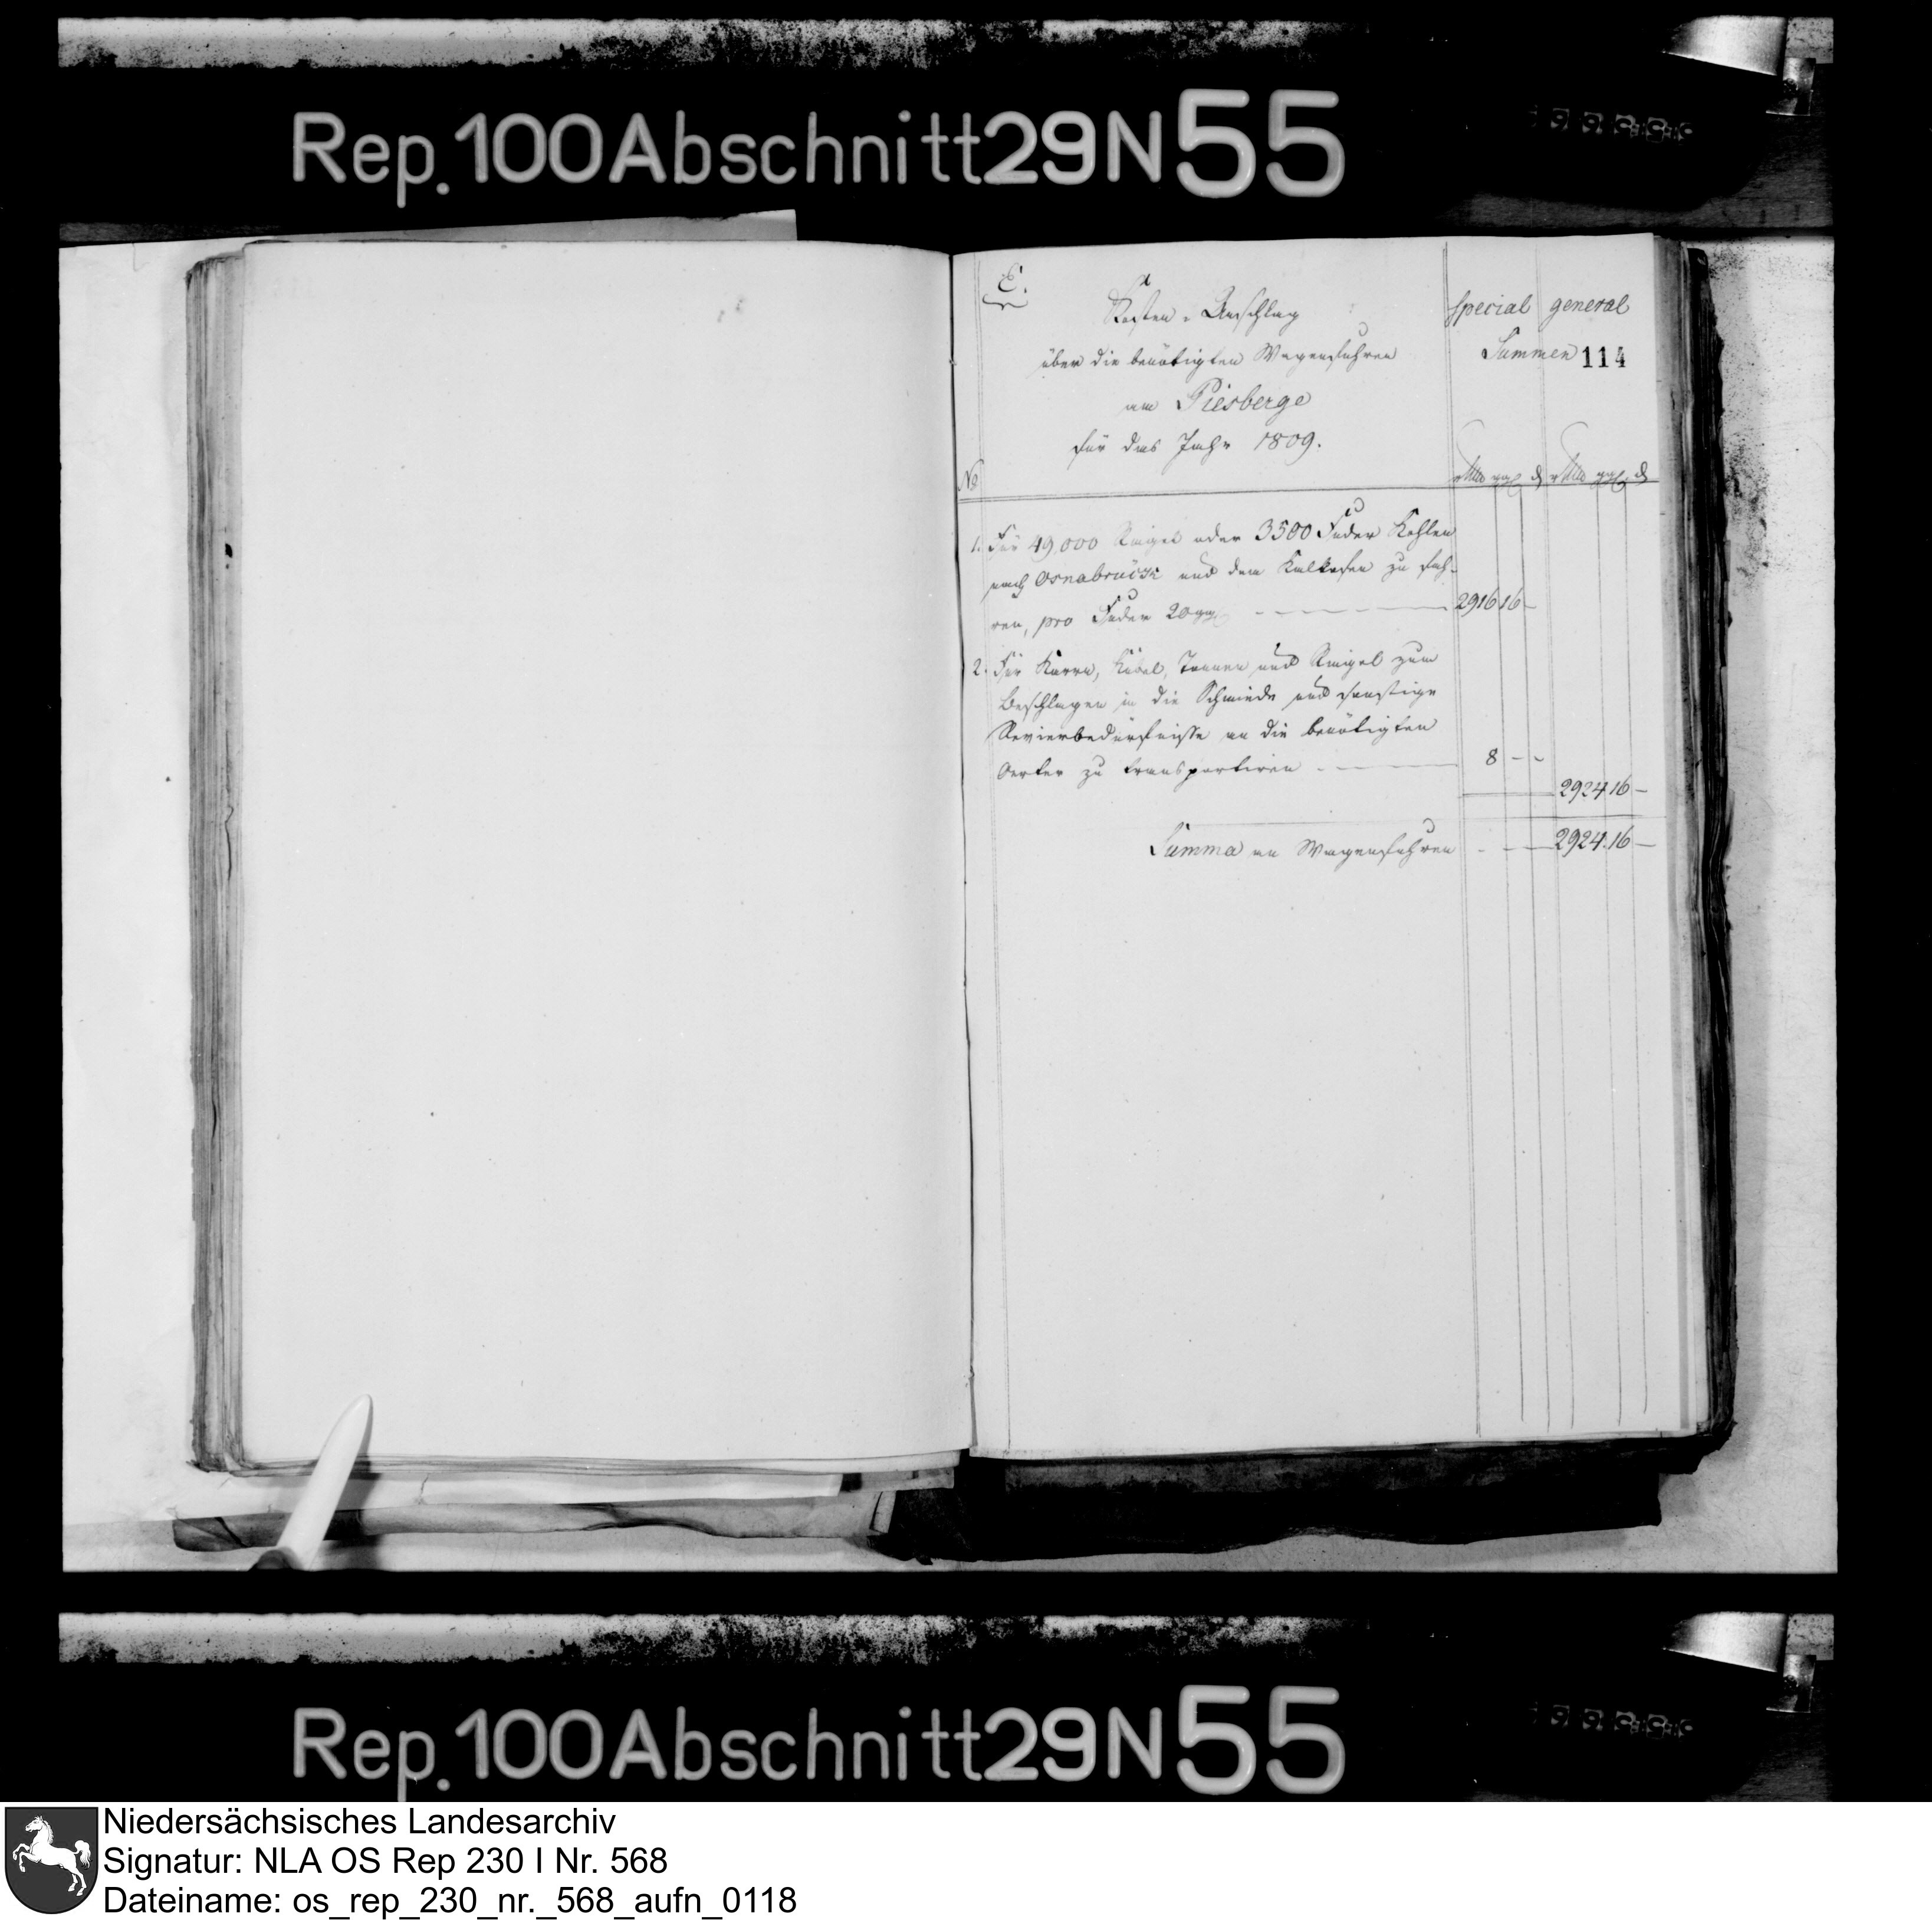 Rep. 100 Abschnitt 29 N 55
E.
Kosten-Anschlag
über die benötigten Wagenfuhren
am Piesberge
für das Jahr 1809.
special general
Summen 114
No
rthlr ggl d rthlr ggl d
1. Für 49,000 Ringel oder 3500 Fuder Kohlen
nach Osnabrück und dem Kalkofen zu fah-
ren, pro Fuder 20 ggl 2916 16 -
2. Für Karrn, Kübel, Tonnen und Ringel zum
Beschlagen in die Schmiede und sonstige
Revierbedürfnisse an die benötigten
Oerter zu transportiren 8 - -
2924 16 -
Summa an Wagenfuhren - - - 2924. 16 -
Rep. 100 Abschnitt 29 N 55
Niedersächsisches Landesarchiv
Signatur: NLA OS Rep 230 I Nr. 568
Dateiname: os_rep_230_nr._568_aufn_0118